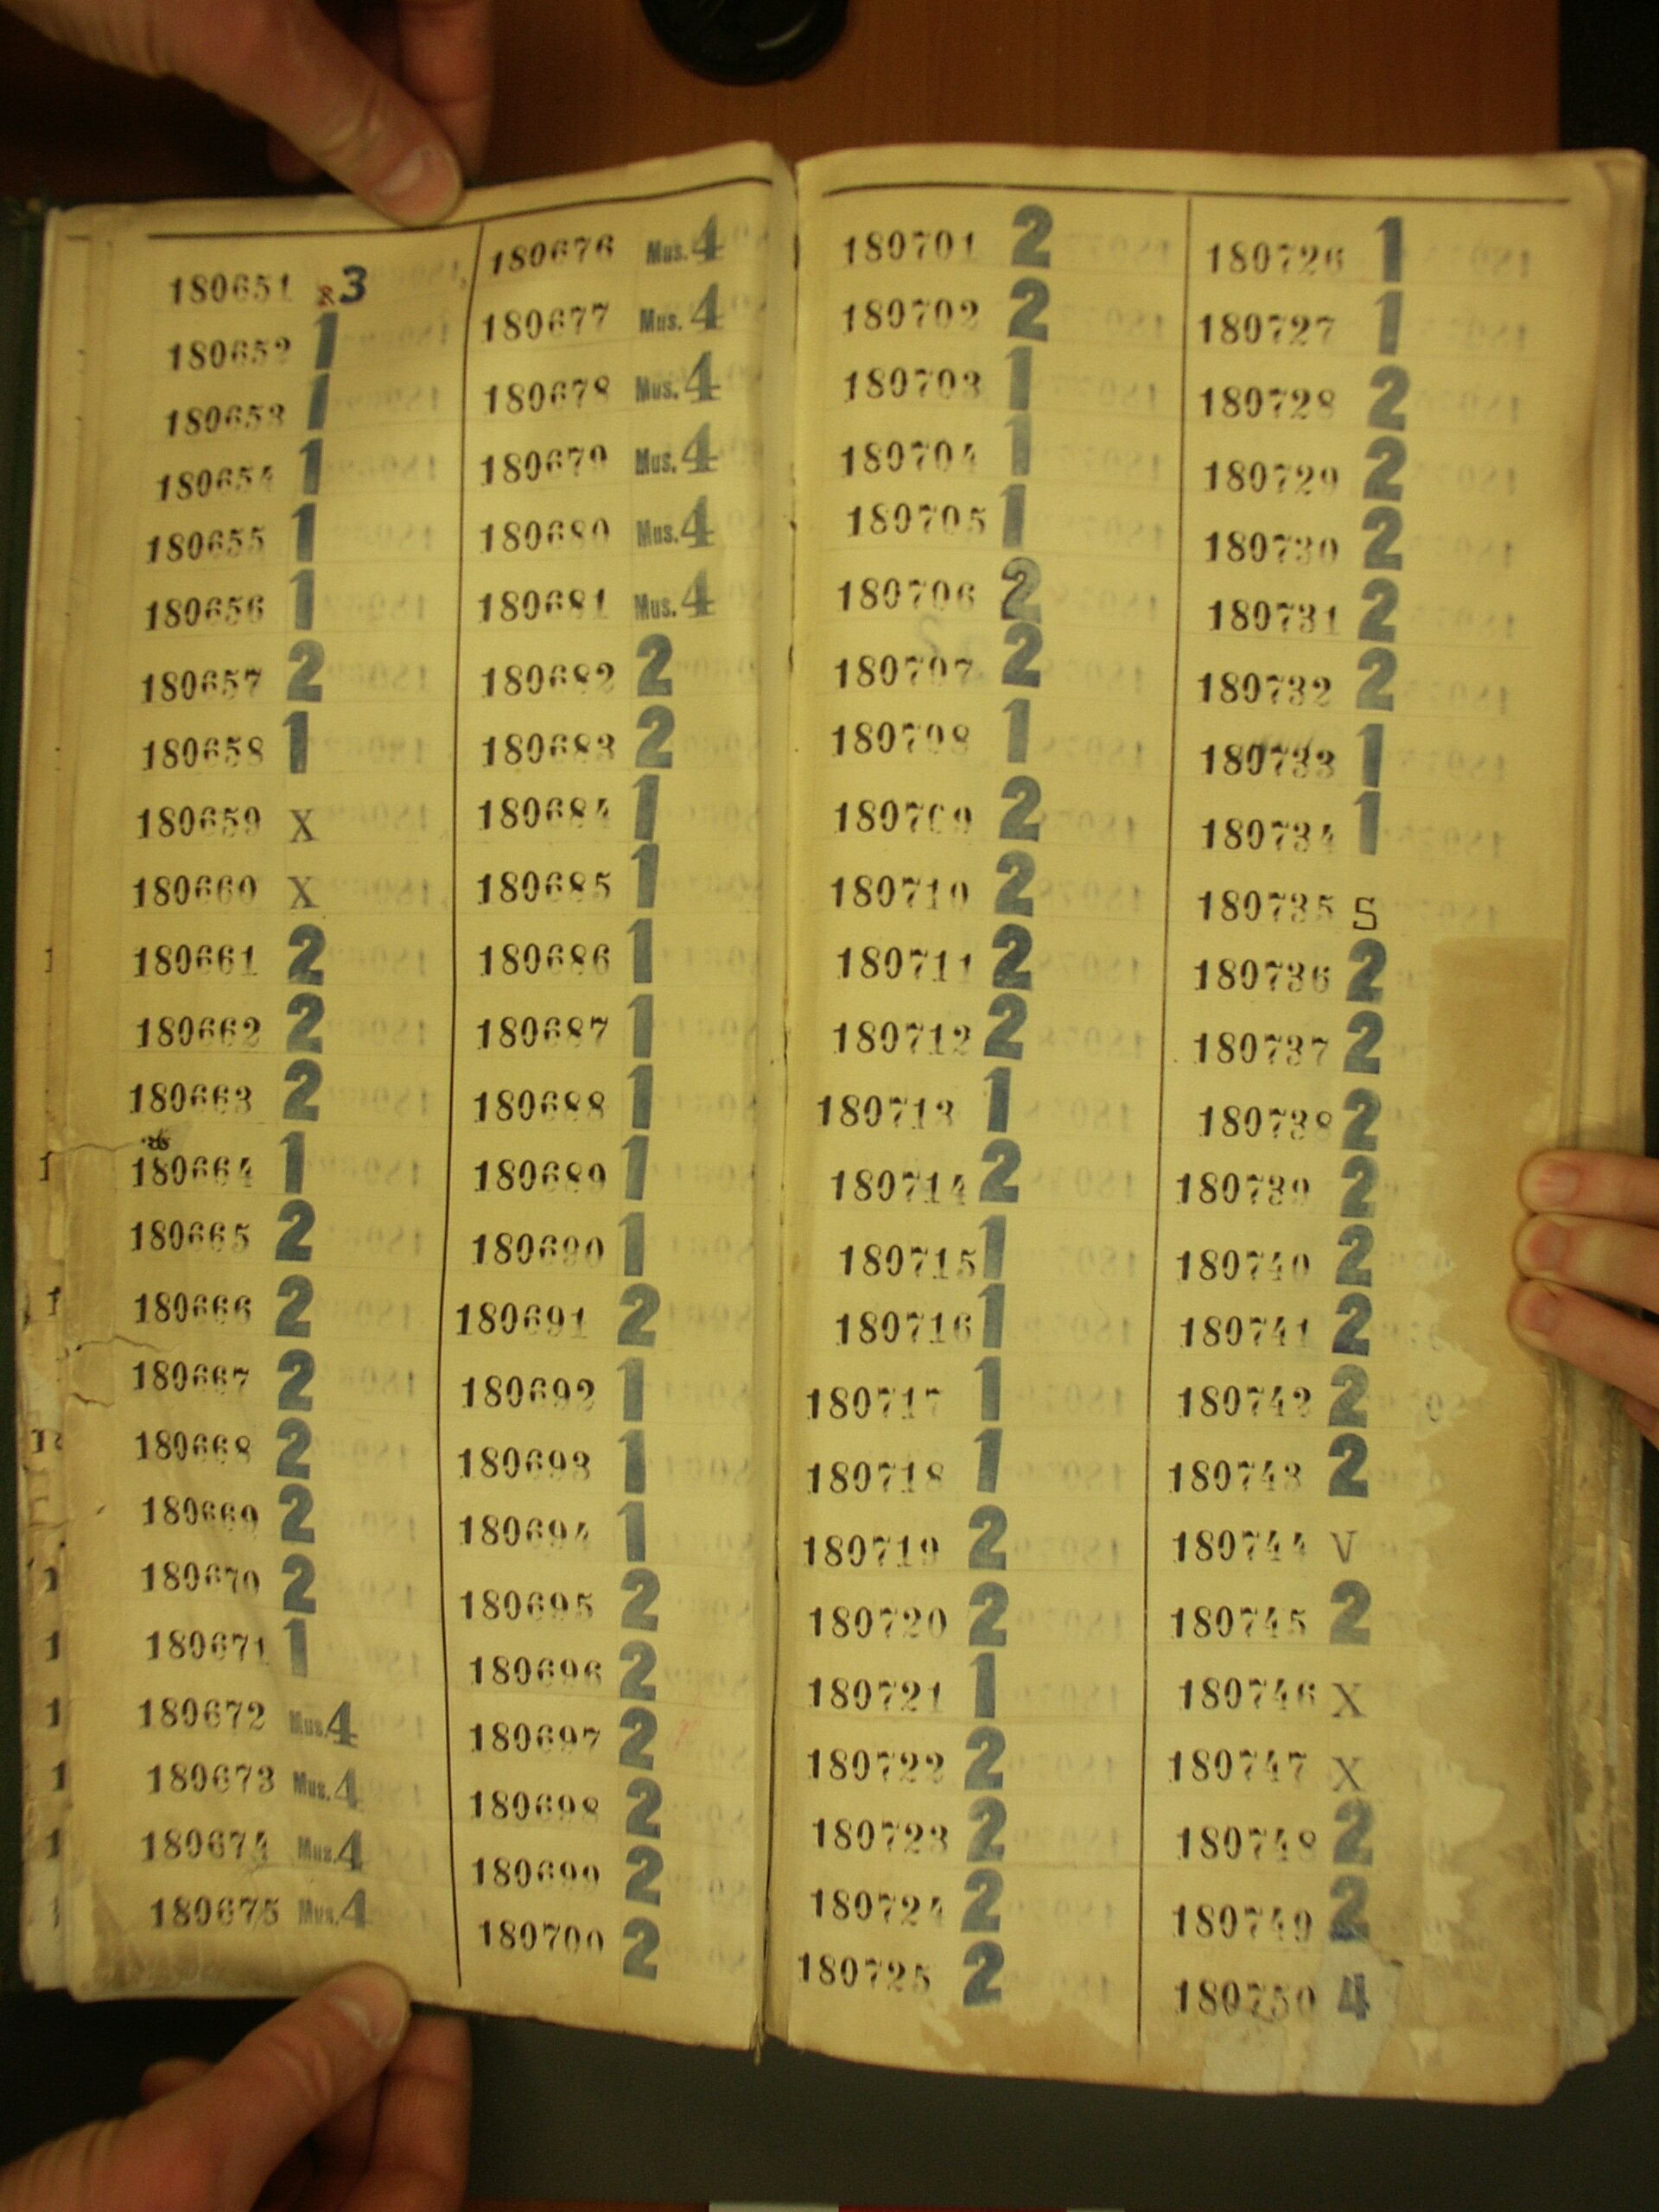 180651 R3
180652 1
180653 1
180654 1
180655 1
180656 1
180657 2
180658 1
180659 X
180660 X
180661 2
180662 2
180663 2
180664 1
180665 2
180666 2
180667 2
180668 2
180669 2
180670 2
180671 1
180672 Mus.4
180673 Mus.4
180674 Mus.4
180675 Mus.4
180676 Mus.4
180677 Mus.4
180678 Mus.4
180679 Mus.4
180680 Mus.4
180681 Mus.4
180682 2
180683 2
180684 1
180685 1
180686 1
180687 1
180688 1
180689 1
180690 1
180691 2
180692 1
180693 1
180694 1
180695 2
180696 2
180697 2
180698 2
180699 2
180700 2
180701 2
180702 2
180703 1
180704 1
180705 1
180706 2
180707 2
180708 1
180709 2
180710 2
180711 2
180712 2
180713 1
180714 2
180715 1
180716 1
180717 1
180718 1
180719 2
180720 2
180721 1
180722 2
180723 2
180724 2
180725 2
180726 1
180727 1
180728 2
180729 2
180730 2
180731 2
180732 2
180733 1
180734 1
180735 S
180736 2
180737 2
180738 2
180739 2
180740 2
180741 2
180742 2
180743 2
180744 V
180745 2
180746 X
180747 X
180748 2
180749 2
180750 4